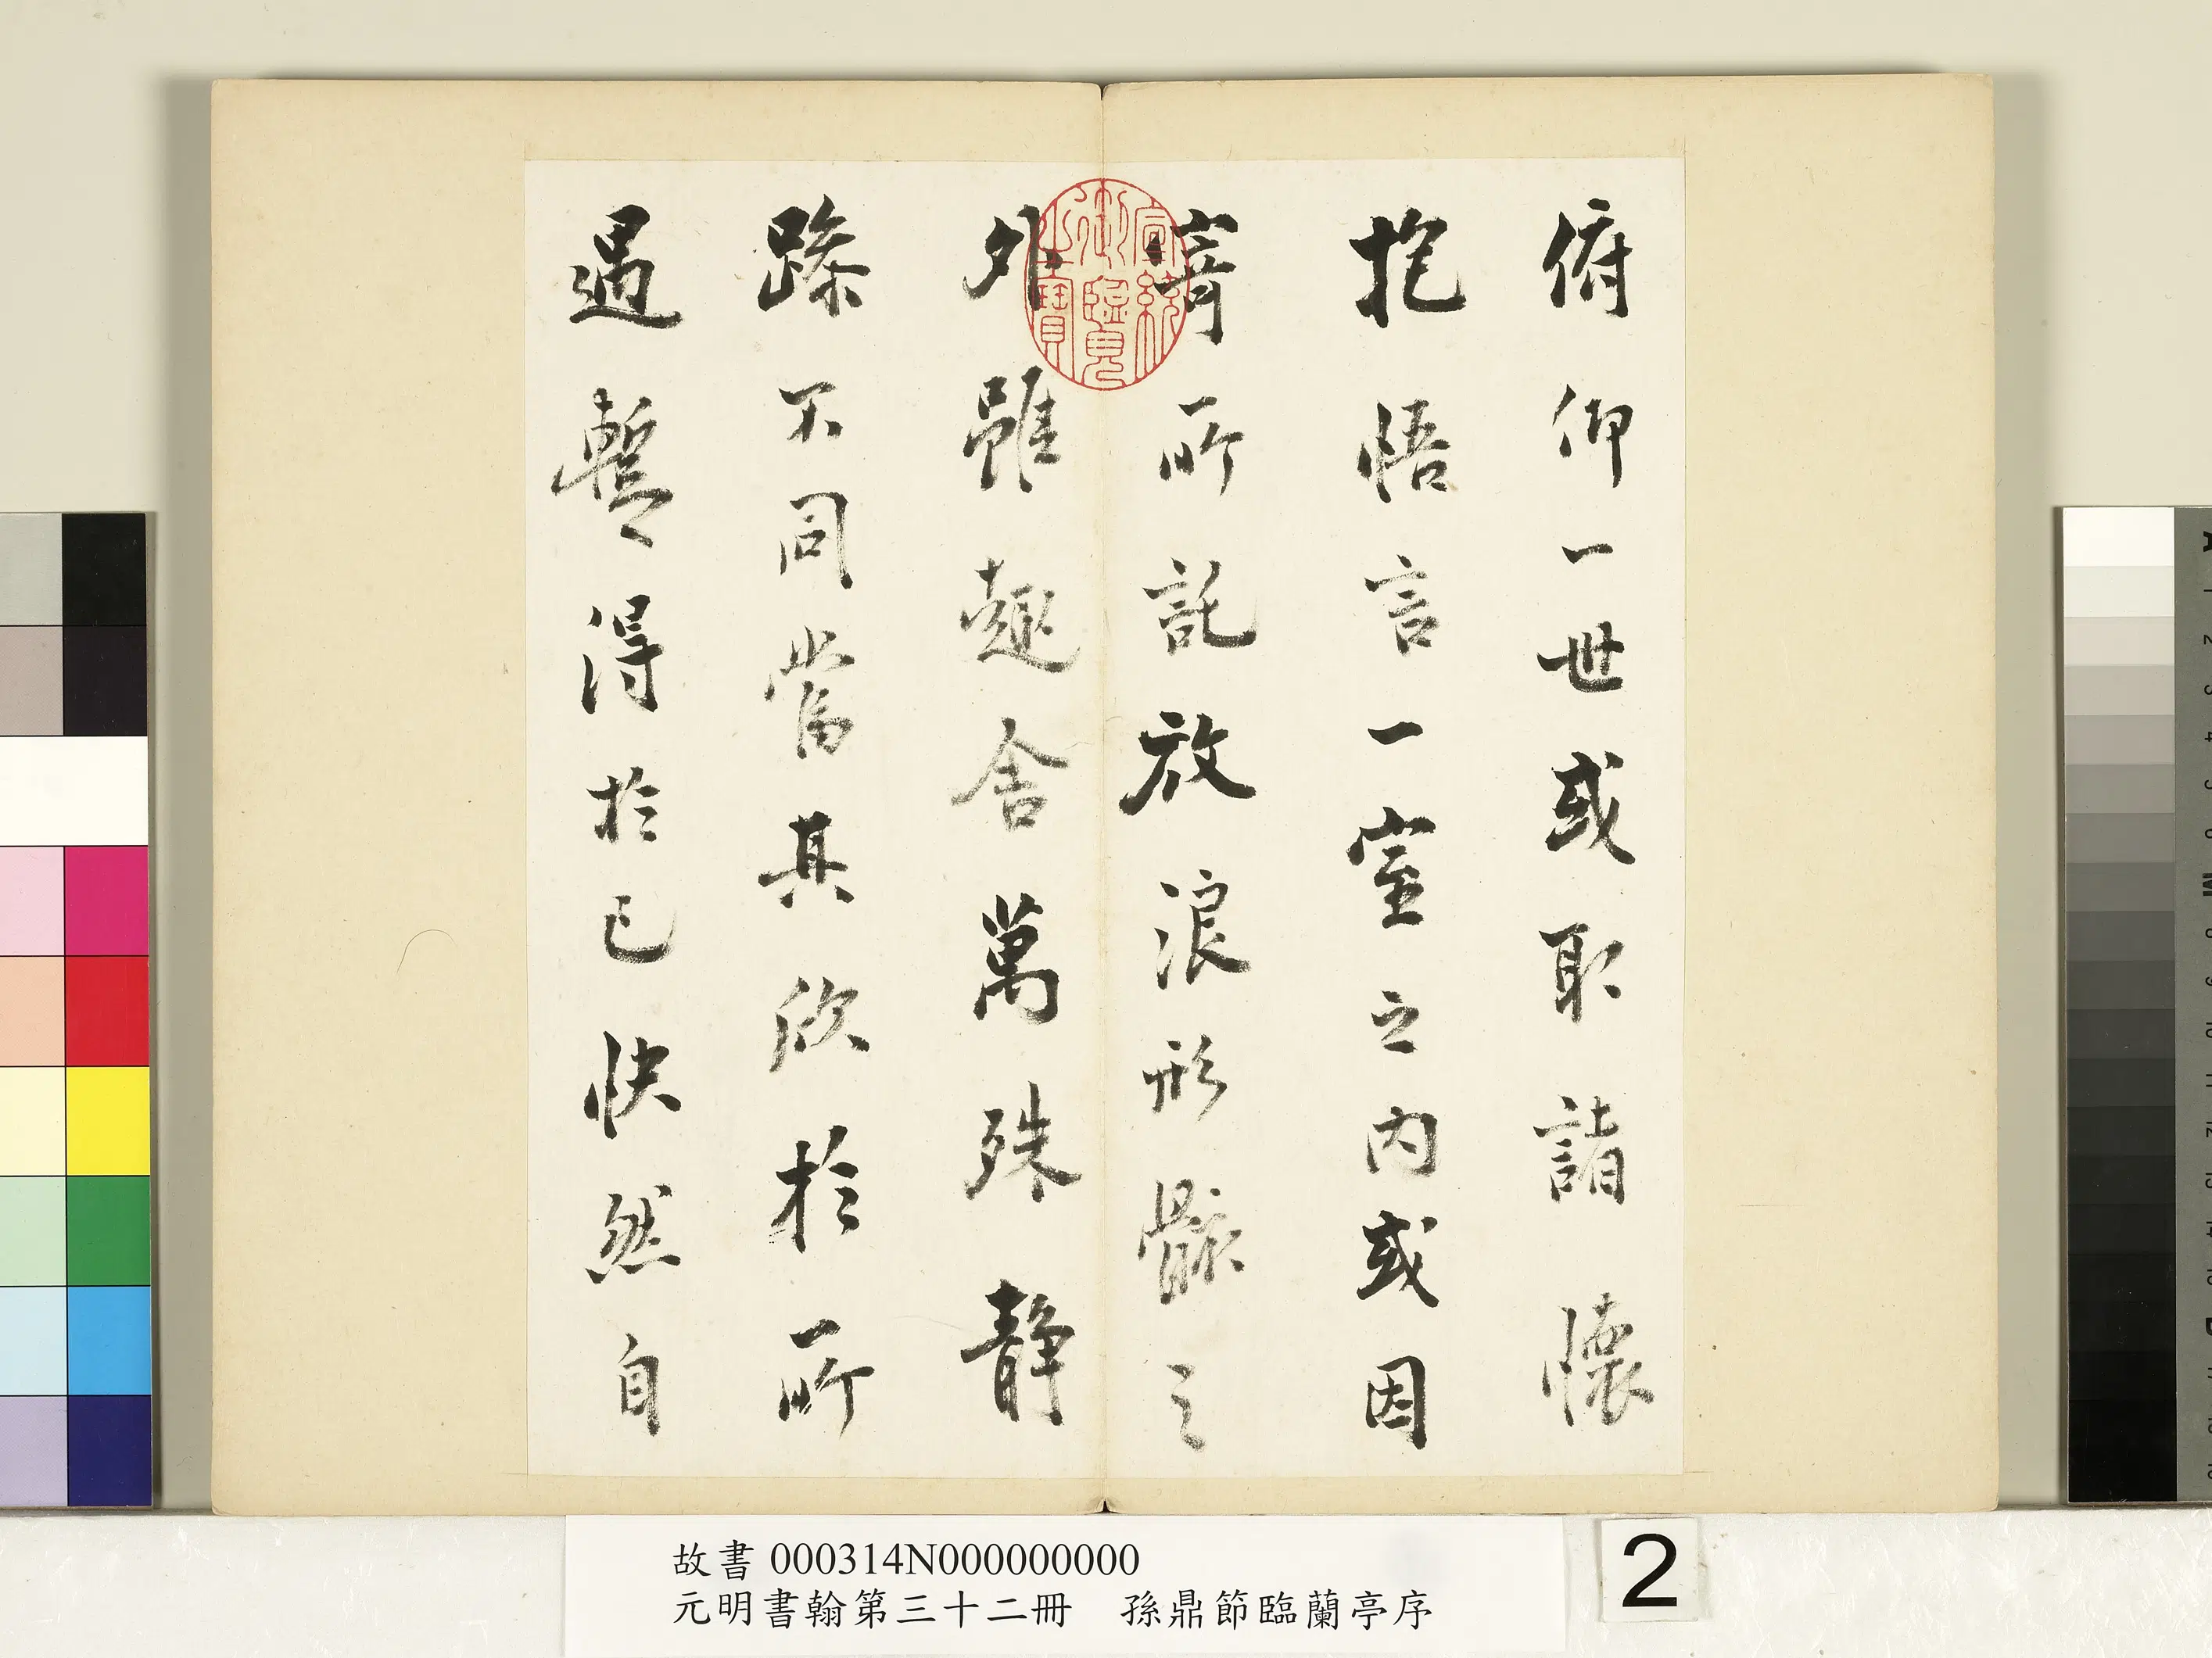 俯仰一世或取諸懷
抱悟言一室之内或因
寄所託放浪形骸之
外雖趣舎萬殊静
躁不同當其欣於所
遇暫得於己快然自
宣統
御覽
之寶
故書 000314N000000000
元明書翰第三十二冊 孫鼎節臨蘭亭序
2